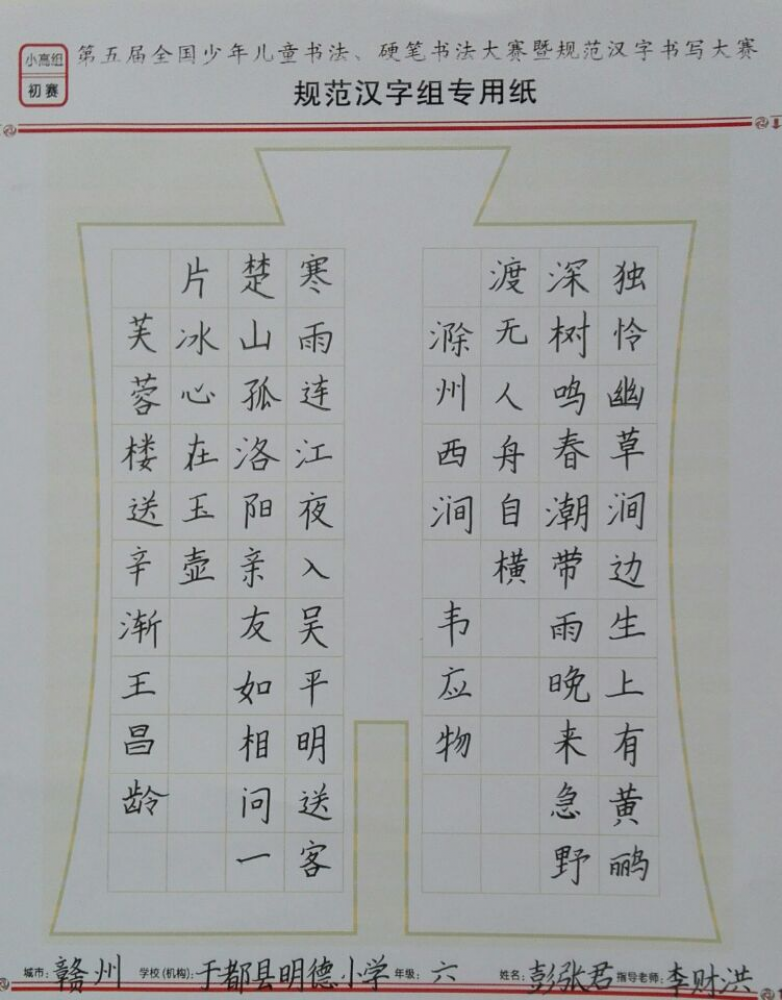 小高组
初赛
第五届全国少年儿童书法、硬笔书法大赛暨规范汉字书写大赛
规范汉字组专用纸
独怜幽草涧边生上有黄鹂
深树鸣春潮带雨晚来急野
渡无人舟自横
滁州西涧 韦应物
寒雨连江夜入吴平明送客
楚山孤洛阳亲友如相问一
片冰心在玉壶
芙蓉楼送辛渐王昌龄
城市：赣州 学校(机构)：于都县明德小学 年级：六 姓名：彭张君 指导老师：李财洪